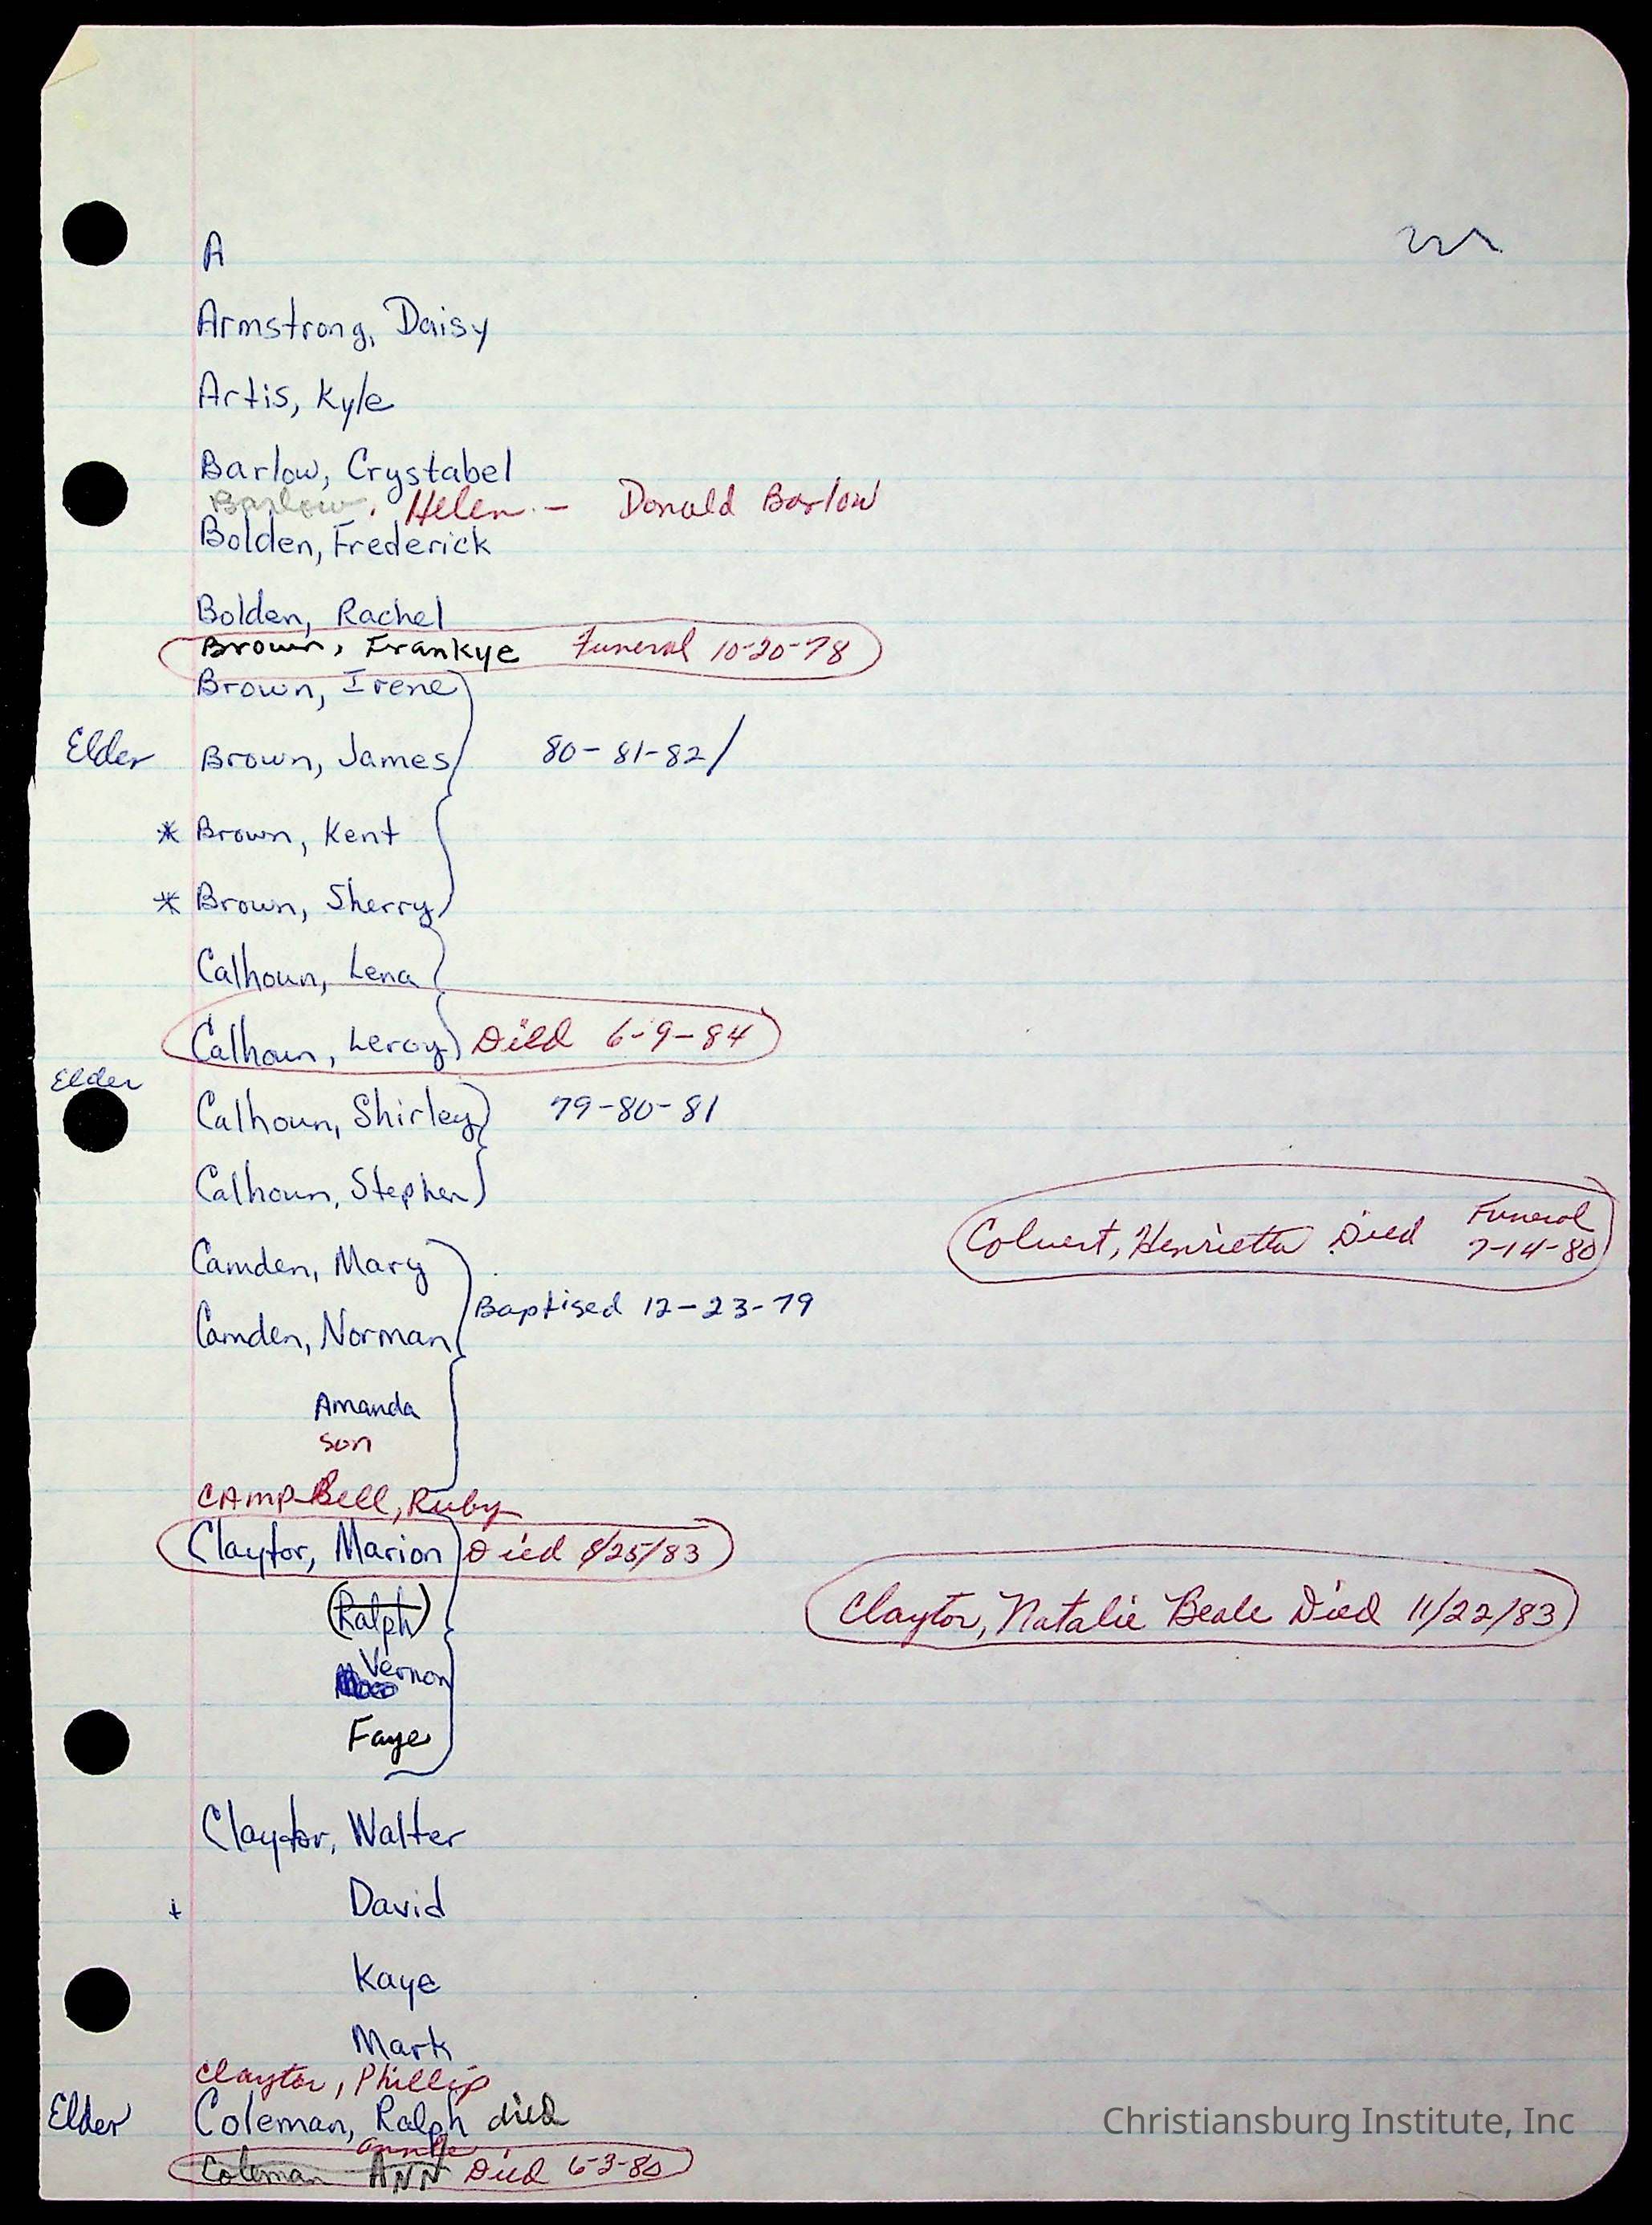 A
Armstrong, Daisy
Artis, Kyle
Barlow, Crystabel
Barlow, Helen - Donald Barlow
Bolden, Frederick
Bolden, Rachel
Brown, Frankye Funeral 10-20-78
Brown, Irene
Elder Brown, James 80-81-82/
* Brown, Kent
* Brown, Sherry
Calhoun, Lena
Calhoun, Leroy Died 6-9-84
Elder
Calhoun, Shirley 79-80-81
Calhoun, Stephen
Colvert, Henrietta Died Funeral
7-14-80
Camden, Mary
Baptised 12-23-79
Camden, Norman
Amanda
son
CAMPBell, Ruby
Claytor, Marion Died 8/25/83
(Ralph)
Claytor, Natalie Beale Died 11/22/83
Vernon
Faye
Claytor, Walter
David
Kaye
Mark
Claytor, Phillip
Elder Coleman, Ralph died
Coleman ANN Died 6-3-80
Christiansburg Institute, Inc